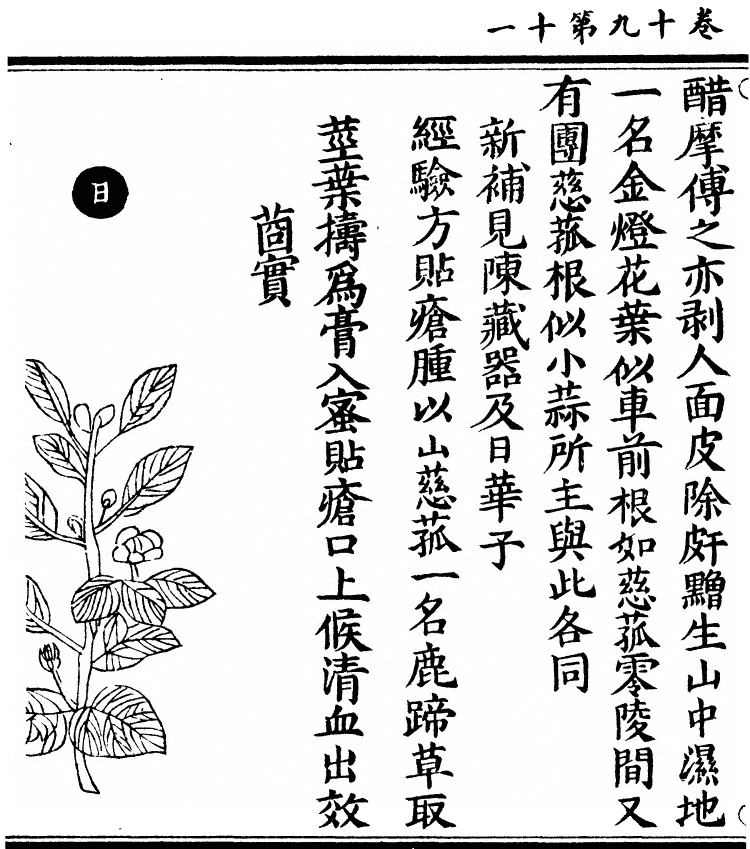 卷十九第十一
醋摩傅之亦剥人面皮除皯䵴生山中濕地
一名金燈花葉似車前根如慈菰零陵間又
有團慈菰根似小蒜所主與此各同
新補見陳藏器及日華子
經驗方貼瘡腫以山慈菰一名鹿蹄草取
莖葉擣爲膏入蜜貼瘡口上候清血出效
莔實
日